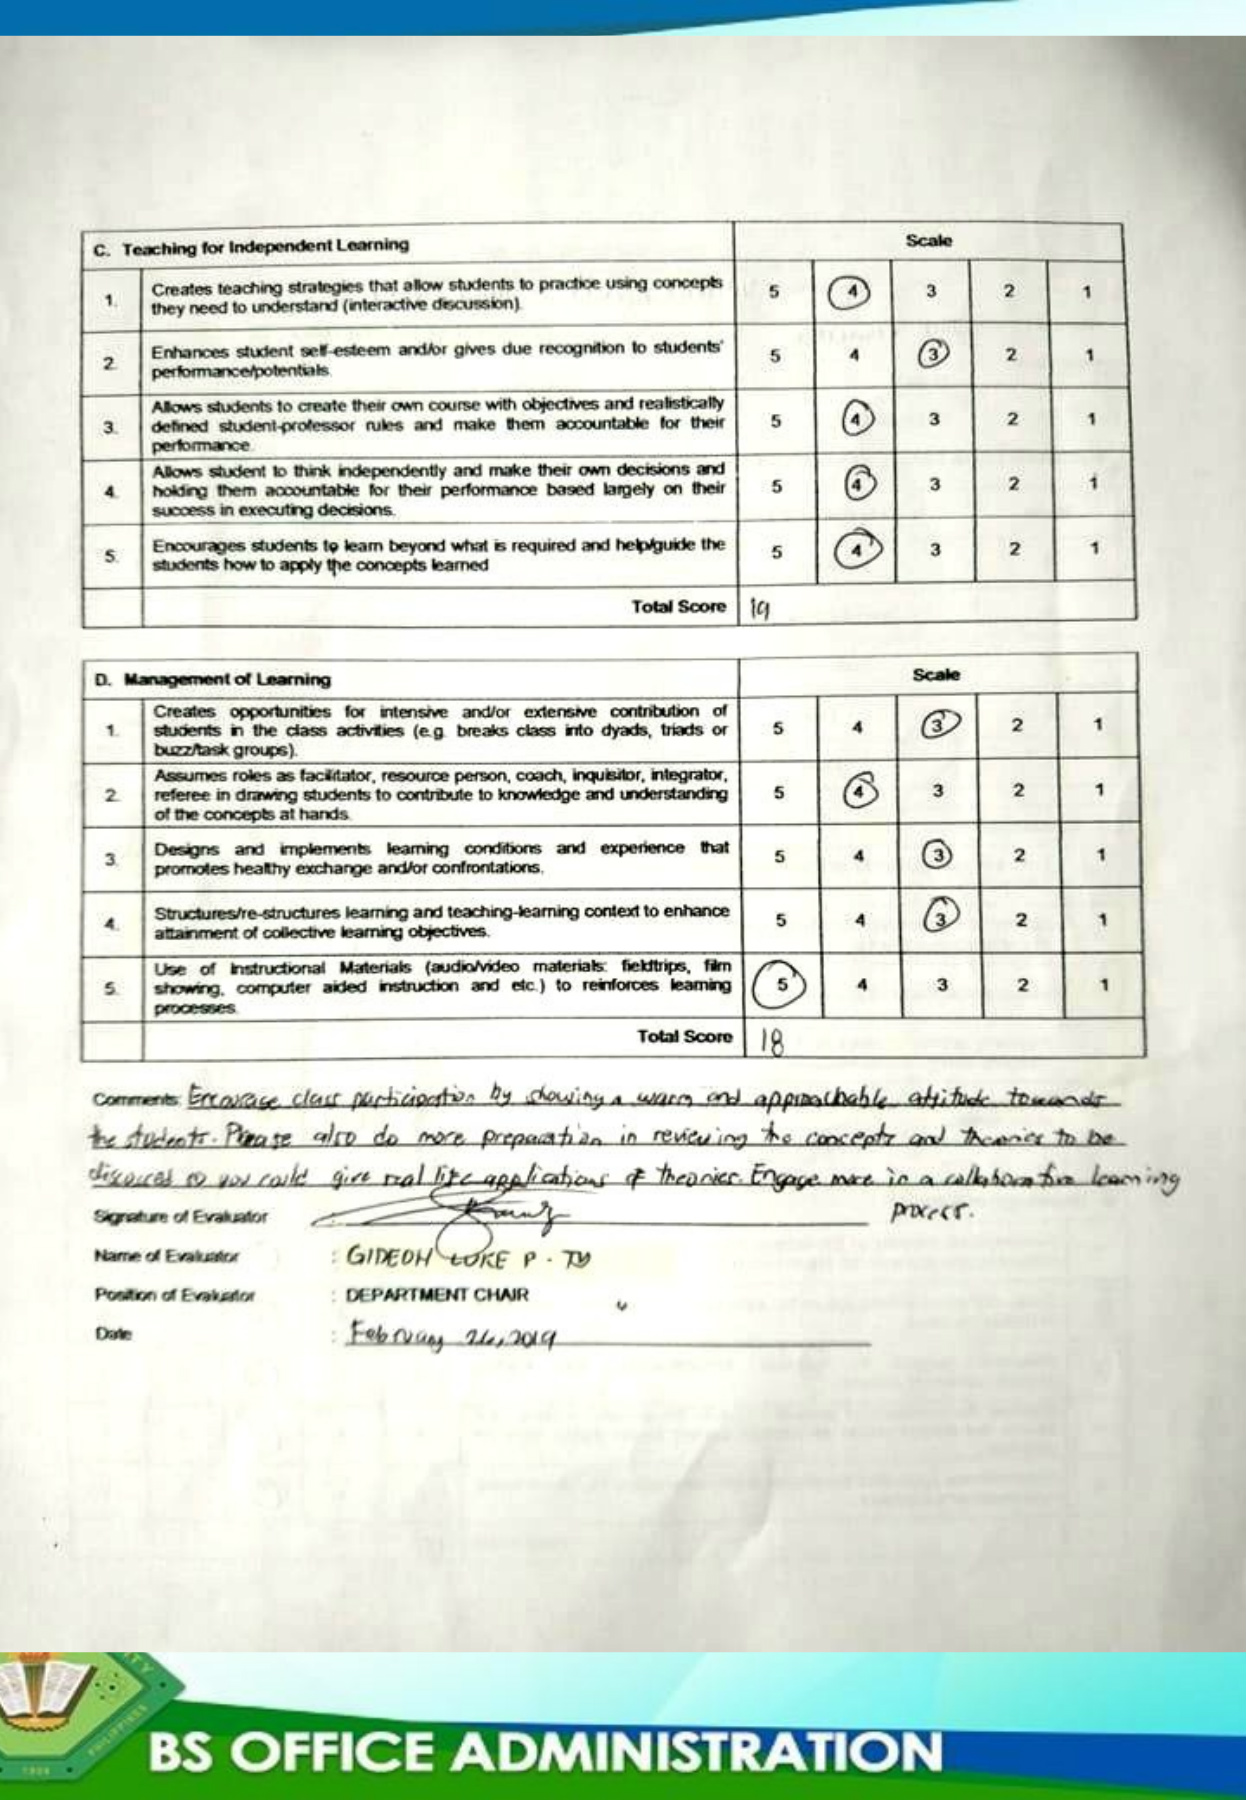 C. Teaching for Independent Learning Scale
1. Creates teaching strategies that allow students to practice using concepts 5 4 3 2 1
they need to understand (interactive discussion).
2. Enhances student self-esteem and/or gives due recognition to students' 5 4 3 2 1
performance/potentials.
3. Allows students to create their own course with objectives and realistically 5 4 3 2 1
defined student-professor rules and make them accountable for their
performance.
4. Allows student to think independently and make their own decisions and 5 4 3 2 1
holding them accountable for their performance based largely on their
success in executing decisions.
5. Encourages students to learn beyond what is required and help/guide the 5 4 3 2 1
students how to apply the concepts learned
Total Score 19
D. Management of Learning Scale
1. Creates opportunities for intensive and/or extensive contribution of 5 4 3 2 1
students in the class activities (e.g. breaks class into dyads, triads or
buzz/task groups).
2. Assumes roles as facilitator, resource person, coach, inquisitor, integrator, 5 4 3 2 1
referee in drawing students to contribute to knowledge and understanding
of the concepts at hands.
3. Designs and implements learning conditions and experience that 5 4 3 2 1
promotes healthy exchange and/or confrontations.
4. Structures/re-structures learning and teaching-learning context to enhance 5 4 3 2 1
attainment of collective learning objectives.
5. Use of Instructional Materials (audio/video materials: fieldtrips, film 5 4 3 2 1
showing, computer aided instruction and etc.) to reinforces learning
processes.
Total Score 18
Comments: Encourage class participation by showing a warm and approachable attitude towards
the students. Please also do more preparation in reviewing the concepts and theories to be
discussed so you could give real life applications of theories. Engage more in a collaborative learning
process.
Signature of Evaluator
Name of Evaluator : GIDEON LUKE P. TY
Position of Evaluator : DEPARTMENT CHAIR
Date : February 26, 2019
PHILIPPINES
1904
BS OFFICE ADMINISTRATION